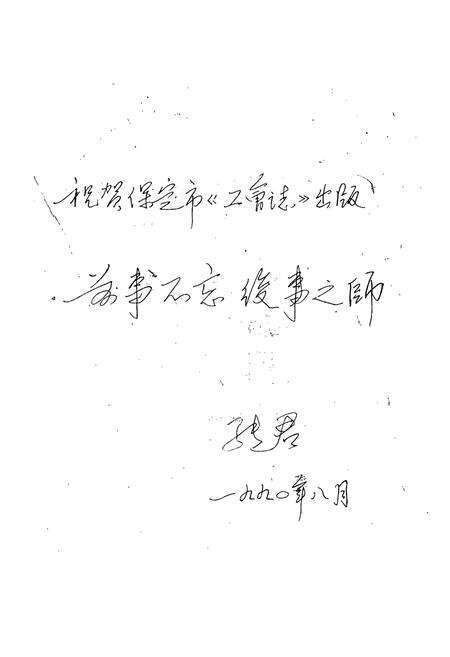 祝贺保定市《工會誌》出版
前事不忘 後事之師
张君
一九九〇年八月